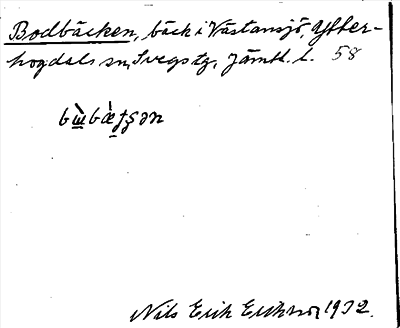 Bodbäcken, bäck i Västansjö, Ytter-
hogdals sn, Svegs tg, Jämtl. l. 58
bẁbæ̀ʈʂən
Nils Erik Erikson 1932.